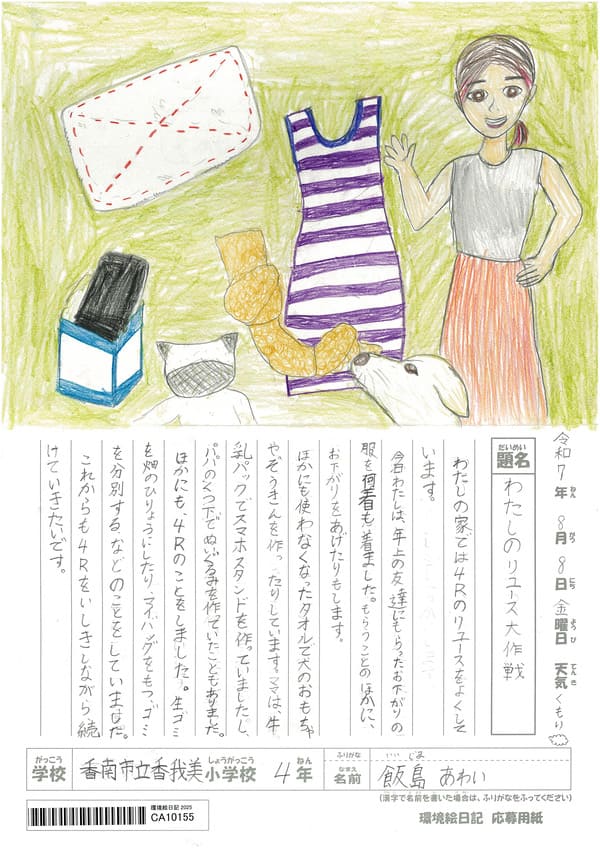 令和7年 8月 8日 金曜日 天気 くもり
ねん がつ にち ようび てんき
だいめい
題名 わたしのリユース大作戦
わたしの家では4Rのリユースをよくして
います。
今日わたしは、年上の友達にもらったお下がりの
服を何着も着ました。もらうことのほかに、
お下がりをあげたりもします。
ほかにも使わなくなったタオルで犬のおもちゃ
やぞうきんを作ったりしています。ママは、牛
乳パックでスマホスタンドを作っていましたし、
パパのくつ下でぬいぐるみを作っていたこともありました。
ほかにも、4Rのことをしました。生ゴミ
を畑のひりょうにしたり、マイバッグをもつ、ゴミ
を分別する、などのことをしていました。
これからも4Rをいしきしながら続
けていきたいです。
がっこう しょうがっこう ねん
学校 香南市立香我美小学校 4年
ふりがな いいじま
なまえ
名前 飯島 あわい
(漢字で名前を書いた場合は、ふりがなをふってください)
環境絵日記 2025
CA10155
環境絵日記 応募用紙